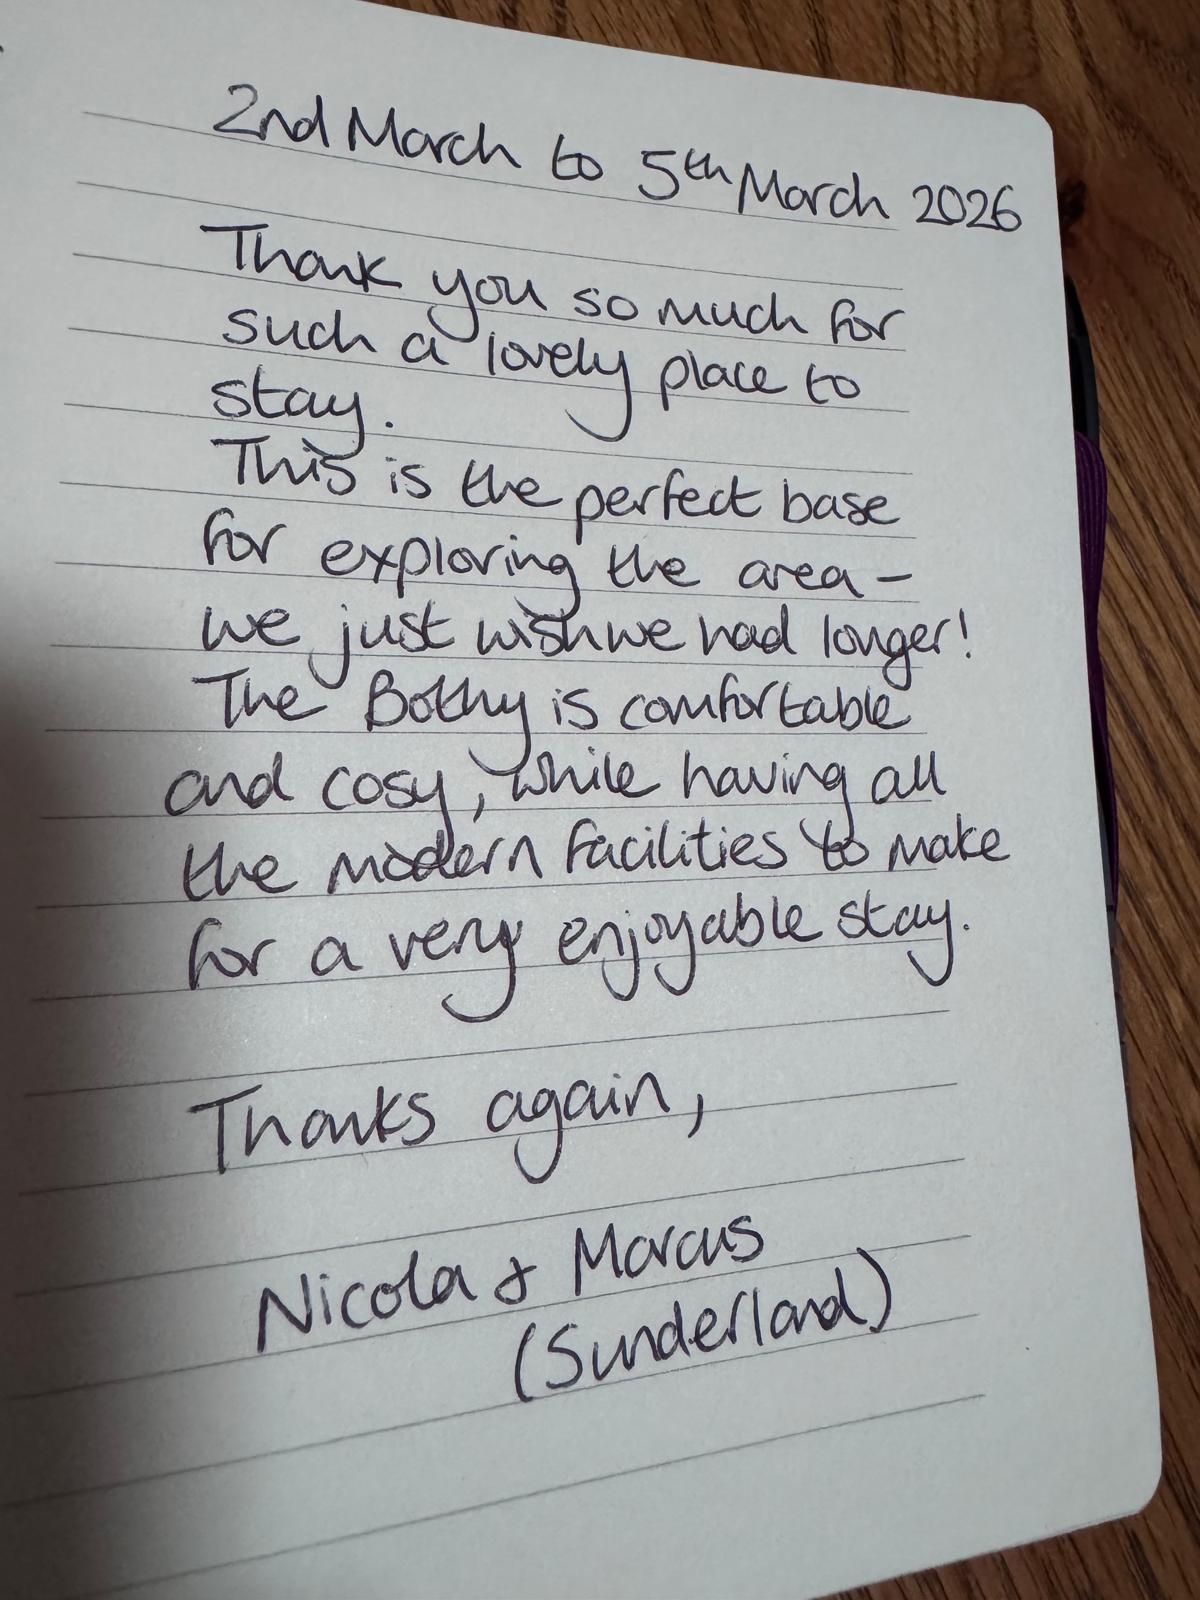 2nd March to 5th March 2026
Thank you so much for
such a lovely place to
stay.
This is the perfect base
for exploring the area –
we just wish we had longer!
The Bothy is comfortable
and cosy, while having all
the modern facilities to make
for a very enjoyable stay.
Thanks again,
Nicola & Marcus
(Sunderland)